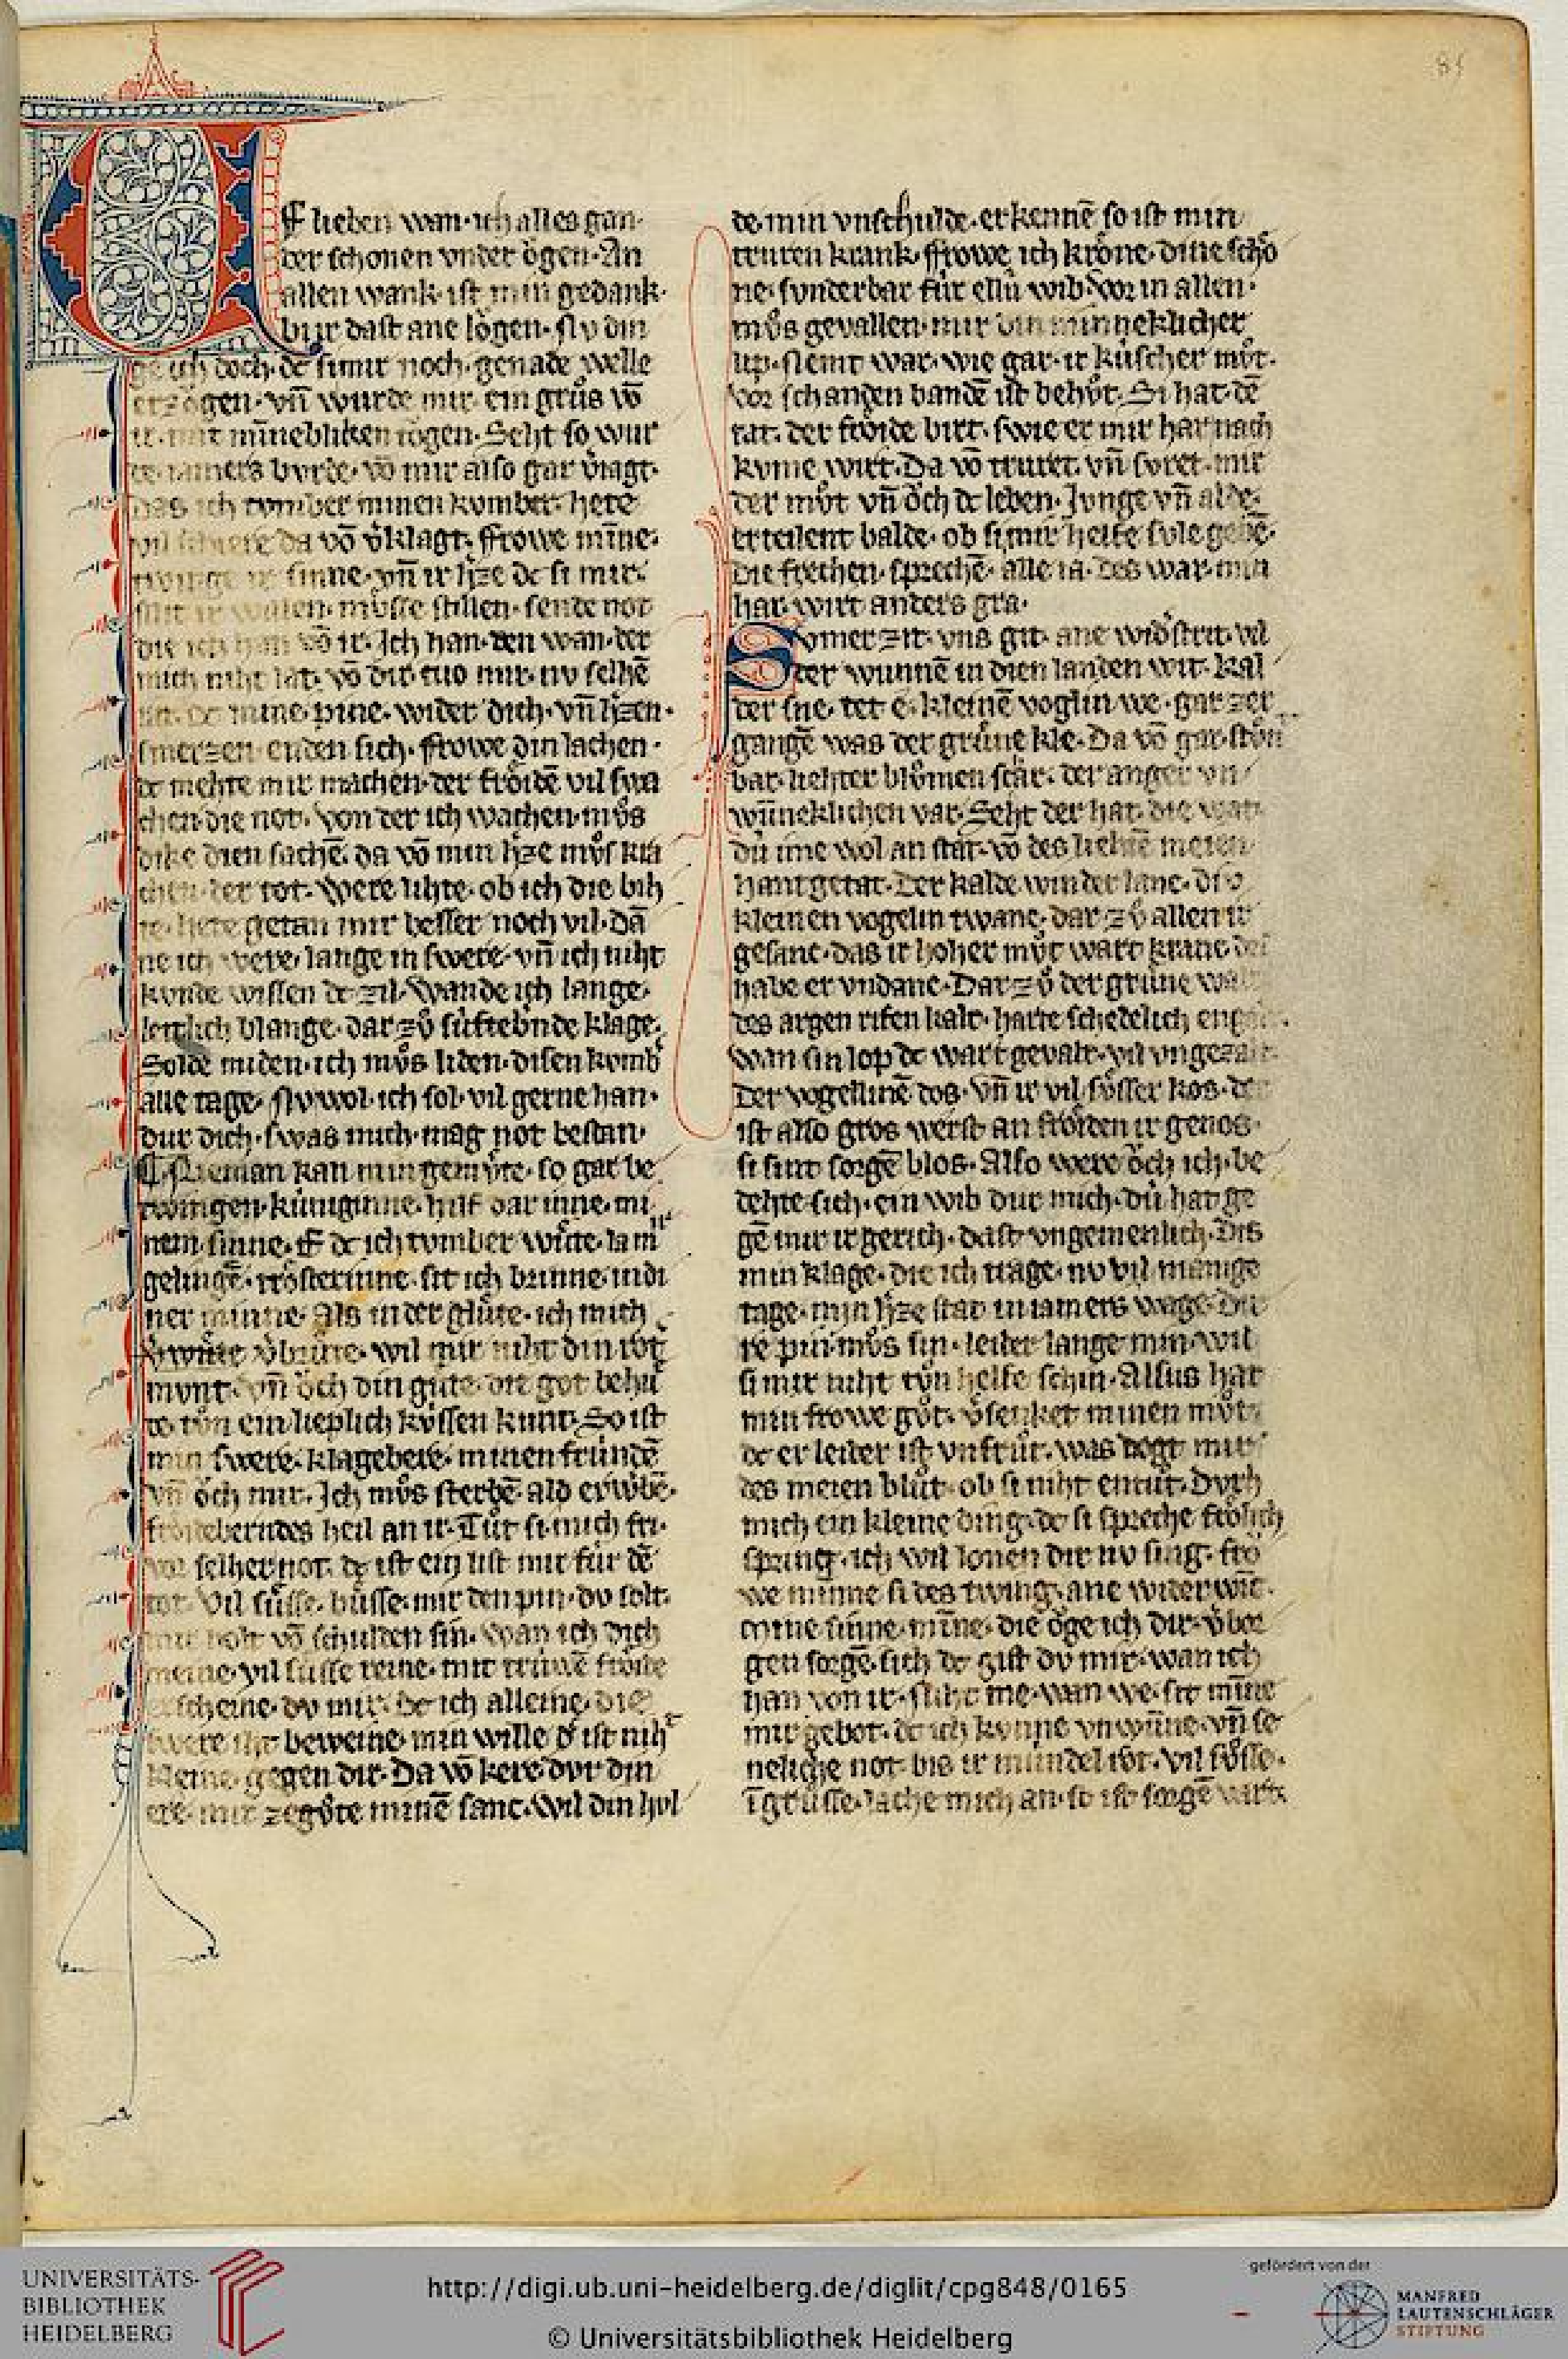 85
UF lieben wan ich alles gan
der schonen vnder ögen. An
allen wank ist min gedank.
bur dast ane lögen. Nv din
ge ich doch. dc si mir noch. genade welle
erzögen. vn̄ wurde mir ein grůs vō
ir. mit mīneblikken tögen. Seht so wur
de. iamers bvrde. vō mir also gar v͛iagt.
das ich tvmber minen kvmber. hete
vil schiere da vō v͛klagt. ffrowe mīne.
twinge ir sinne. vn̄ ir h͛ze dc si mir.
mit ir willen. mv̊sse stillen. sende not
die ich han vō ir. Ich han den wan. der
mich niht lat. vō dir tuo mir. nv selhē
rat. dc mine pine. wider dich. vn̄ h͛zen.
smerzen enden sich. ffrowe din lachen.
dc mehte mir machen. der fröidē vil swa
chen die not. von der ich wachen mv̊s
dike dien sachē. da vō min h͛ze mv̊s kra
chen. der tot. Were lihte. ob ich die bih
te. hete getan mir besser noch vil. Dā
ne ich were. lange in swere. vn̄ ich niht
kvnde wissen dc zil. Wande ich lange.
leitlich blange. dar zv̊ süftebnde klage.
Solde miden. ich mv̊s liden. disen kvmb͛
alle tage. Nv wol ich sol. vil gerne han.
dur dich. swas mich. mag not bestan.
Nieman kan min gemv̊te. so gar be
twingen. küniginne. hilf dar inne. mi
nem sinne. E dc ich tvmber wüte. la mir
gelingē. trösterinne. sit ich brinne. in di
ner minne. Als in der glüte. ich mich
v͛wüte v͛brüte. wil mir niht din rot͛
mvnt. vn̄ öch din güte. die got behü
te. tůn ein lieplich küssen kunt. So ist
min swere. klagebere. minen fründē
vn̄ öch mir. Ich mv̊s sterbē ald erw͛bē.
fröideberndes heil an ir. Tůt si mich fri.
vor selher not. dc ist ein list mir für dē
tot. Vil süsse. büsse. mir den pin. dv solt.
mir holt vō schulden sin. wan ich dich
meine. vil süsse reine. mit trüwē fröide
erscheine. dv mir. dc ich alleine. die
swere iht beweine. min wille d͛ ist niht
kleine. gegen dir. Da vō kere dvr din
ere. mir ze gv̊te minē sanc. Wil din hvl
de. min vnschulde. erkennē so ist min
truren krank. ffrowe ich kröne. dine schö
ne. svnderbar für ellü wib. Vor in allen.
mv̊s gevallen. mir din minneklicher
lip. Nemt war. wie gar. ir küscher mv̊t.
vor schanden bandē ist behv̊t. Si hat. dē
rat. der fröide birt. swie er mir har nach
kvme wirt. Da vō truret. vn̄ svret. mir
der mv̊t vn̄ öch dc leben. Junge vn̄ alde.
erteilent balde. ob si mir helfe svle gebē.
Die frechen. sprechē. alle ia. des war. min
har. wirt anders gra.
Svmer zit. vns git. ane wid͛ strit. vil
der wunnē in dien landen wit. kal
der sne. tet e. kleinē voglin we. gar zer
gangē was der grüne kle. Da vō gar. stůn
bar. liehter blůmen schar. der anger vn
wūneklichen var. Seht der hat. die wat.
dü ime wol an stat. vō des liehtē meien
hantgetat. Der kalde winder lanc. die
kleinen vogelin twanc. dar zv̊ allen ir
gesanc. das ir hoher mv̊t wart kranc des
habe er vndanc. Dar zv̊ der grüne walt
des argen rifen kalt. harte schedelich engalt.
wan sin lop dc wart gevalt. vil vngezalt.
Der vogellinē dos. vn̄ ir vil sv̊sser kos. der
ist also gros. werst an fröiden ir genos.
si sint sorgē blos. Also were öch ich. be
dehte sich. ein wib dur mich. dü hat ge
gē mir ir gerich. dast vngemenlich. Dis
min klage. die ich trage. nv vil manige
tage. min h͛ze stat in iamers wage. Di
re pin. mv̊s sin. leider lange min. wil
si mir niht tůn helfe schin. Alsus hat
min frowe gůt. v͛senket minen mv̊t.
dc er leider ist vnfrůt. was togt mir
des meien blůt. ob si niht entůt. Dvrh
mich ein kleine ding. dc si spreche frölich
spring. ich wil lonen dir nv sing. frö
we minne si des twing. ane wider winc.
mine sinne. mīne. die öge ich dir. v͛bor
gen sorgē. sich dc gist dv mir. wan ich
han von ir. Niht me. wan we. sit mīne
mir gebot. dc ich kvnne vnwūne. vn̄ se
neliche not. bis ir mündel rot. vil sv̊sse.
ī grůsse. lache mich an. so ist sorgē wart.
UNIVERSITÄTS-
BIBLIOTHEK
HEIDELBERG
http://digi.ub.uni-heidelberg.de/diglit/cpg848/0165
© Universitätsbibliothek Heidelberg
gefördert von der
MANFRED
LAUTENSCHLÄGER
STIFTUNG